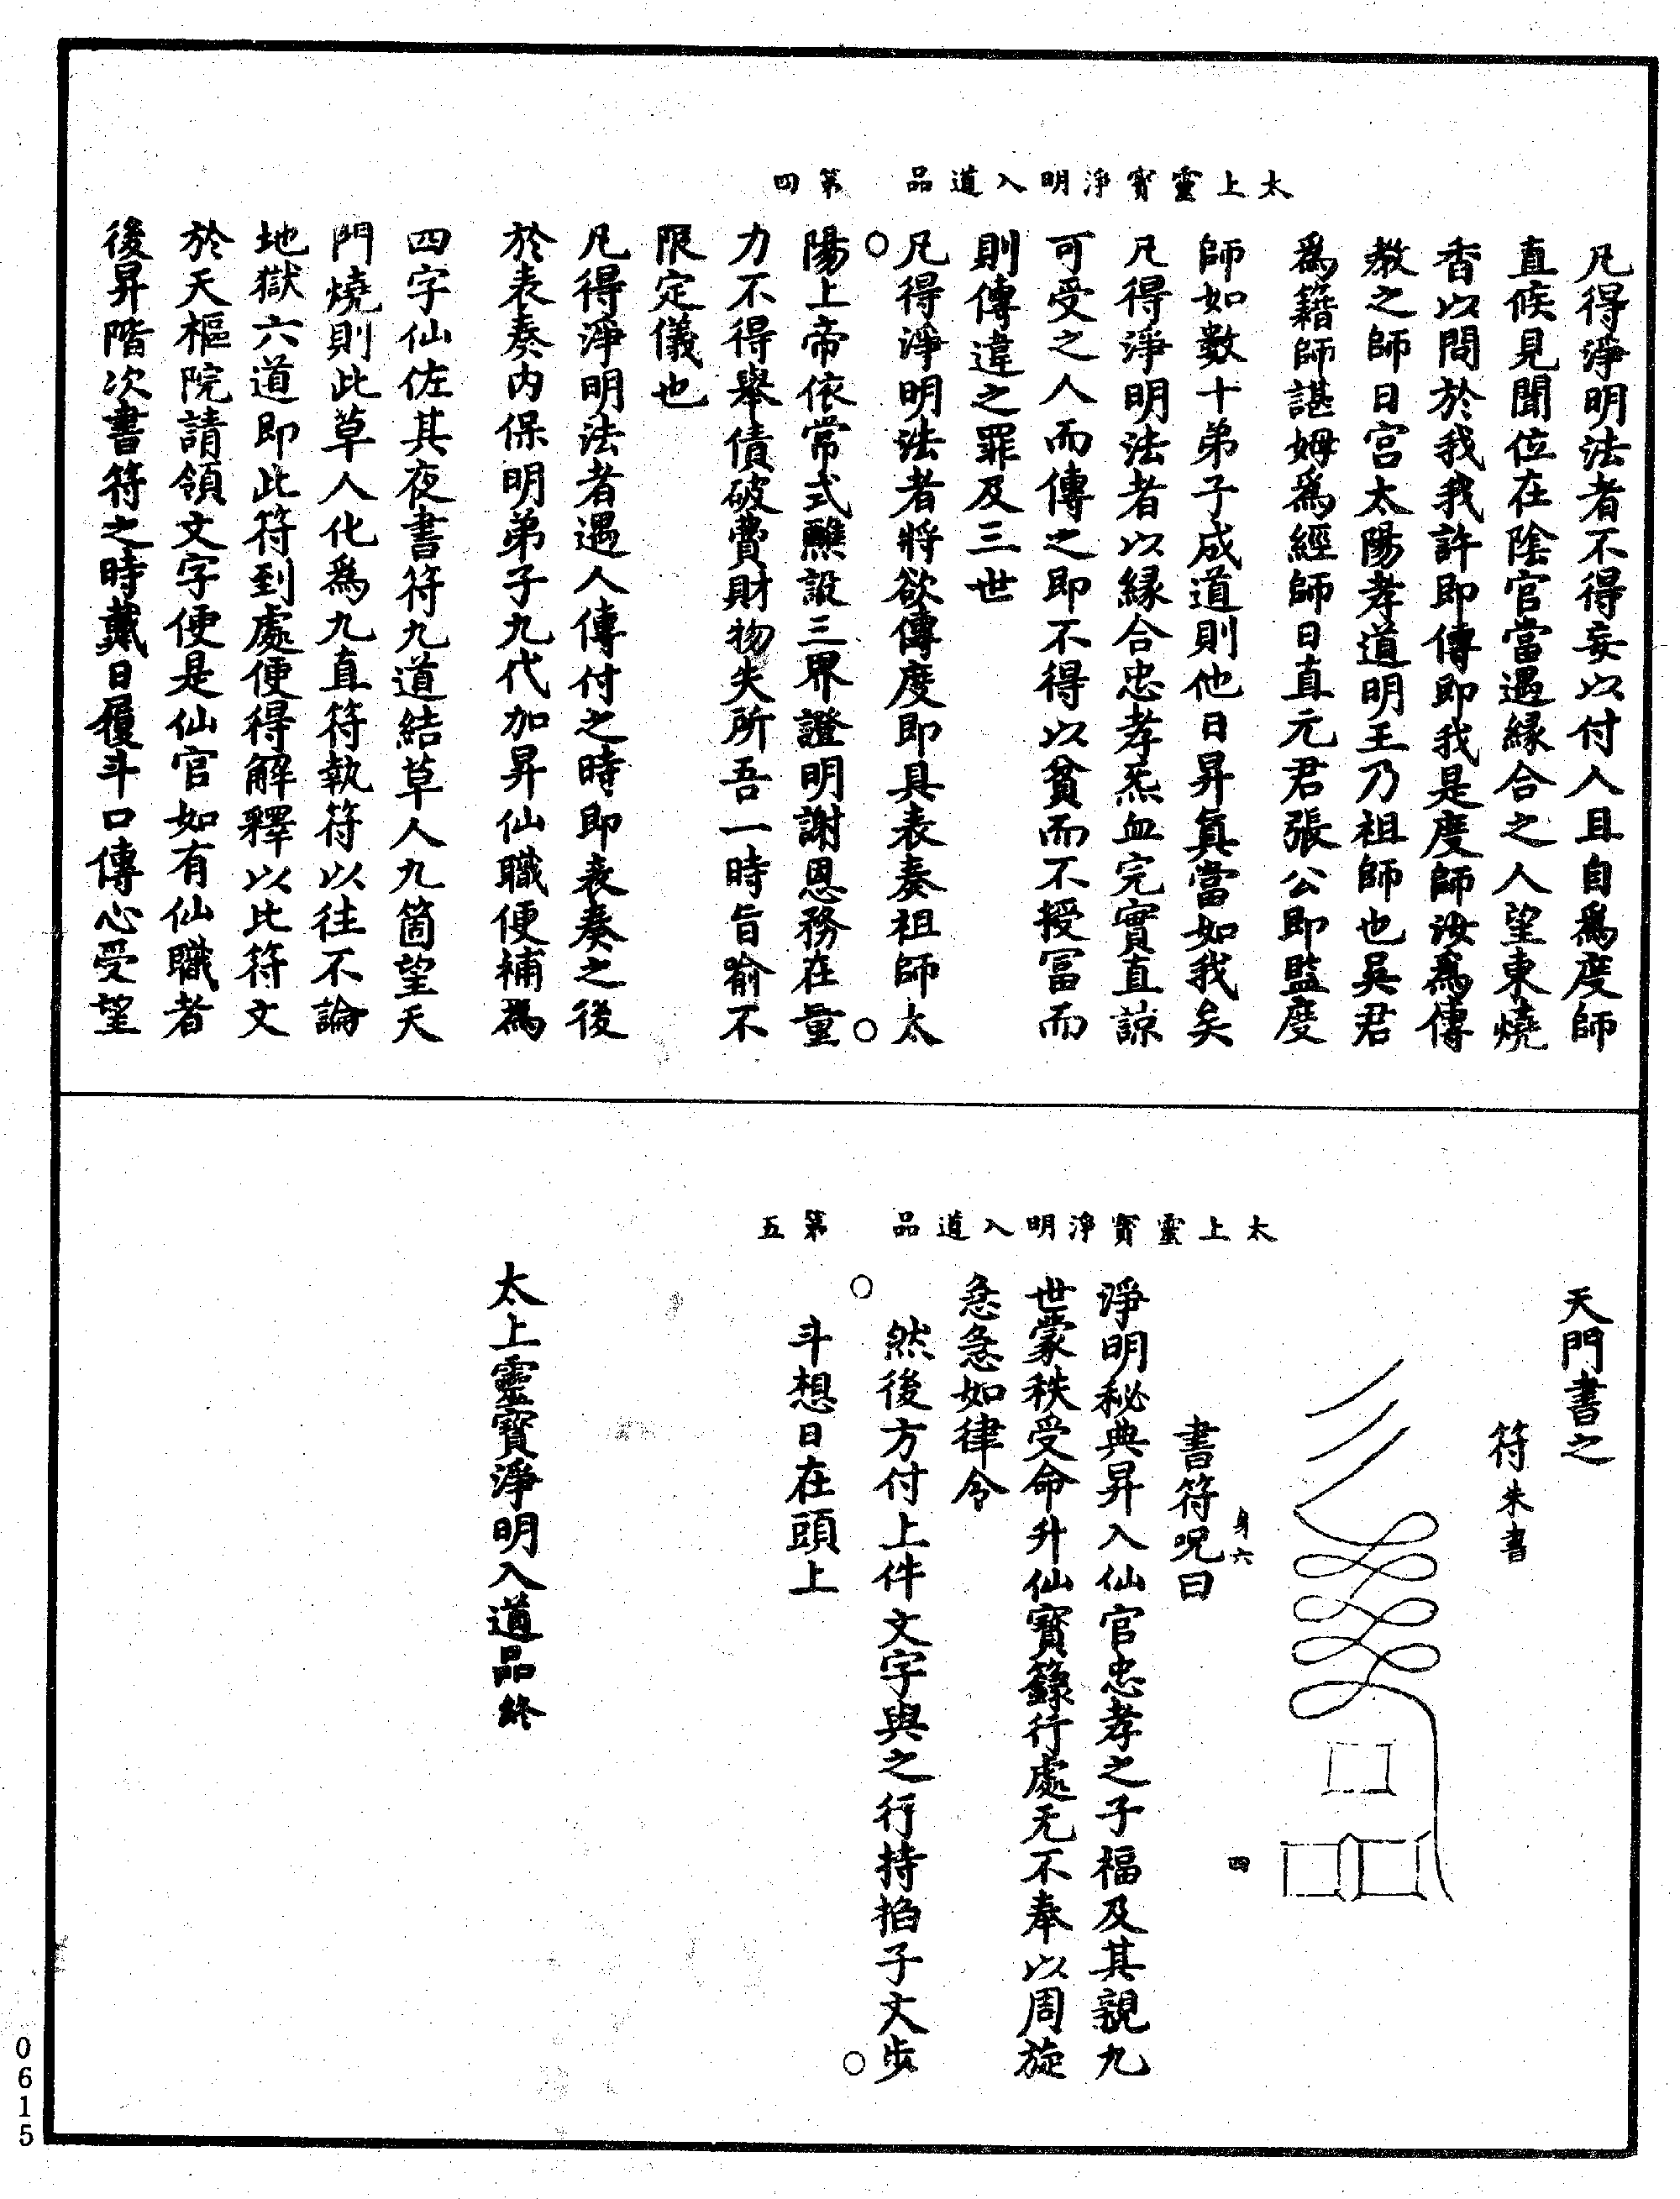 太上靈寶淨明入道品　第四
凡得淨明法者不得妄以付入且自爲度師
直候見聞位在陰官當遇緣合之人望東燒
香以問於我我許即傳即我是度師汝爲傳
教之師日宮太陽孝道明王乃祖師也吳君
爲籍師諶姆爲經師日直元君張公即監度
師如數十弟子成道則他日昇眞當如我矣
凡得淨明法者以緣合忠孝炁血完實直諒
可受之人而傳之即不得以貧而不授冨而
則傳違之罪及三世
凡得淨明法者將欲傳度即具表奏祖師太
陽上帝依常式醮設三界證明謝恩務在量
力不得舉債破費財物失所吾一時旨喻不
限定儀也
凡得淨明法者遇人傳付之時即表奏之後
於表奏内保明弟子九代加昇仙職便補爲
四字仙佐其夜書符九道結草人九箇望天
門燒則此草人化爲九直符執符以往不論
地獄六道即此符到處便得解釋以比符文
於天樞院請領文字便是仙官如有仙職者
後昇階次書符之時戴日履斗口傳心受望
太上靈寶淨明入道品　第五
天門書之
符朱書
身六　四
書符呪曰
淨明秘典昇入仙官忠孝之子福及其親九
世蒙秩受命升仙寶籙行處无不奉以周旋
急急如律令
然後方付上件文字與之行持掐子文步
斗想日在頭上
太上靈寶淨明入道品終
0615